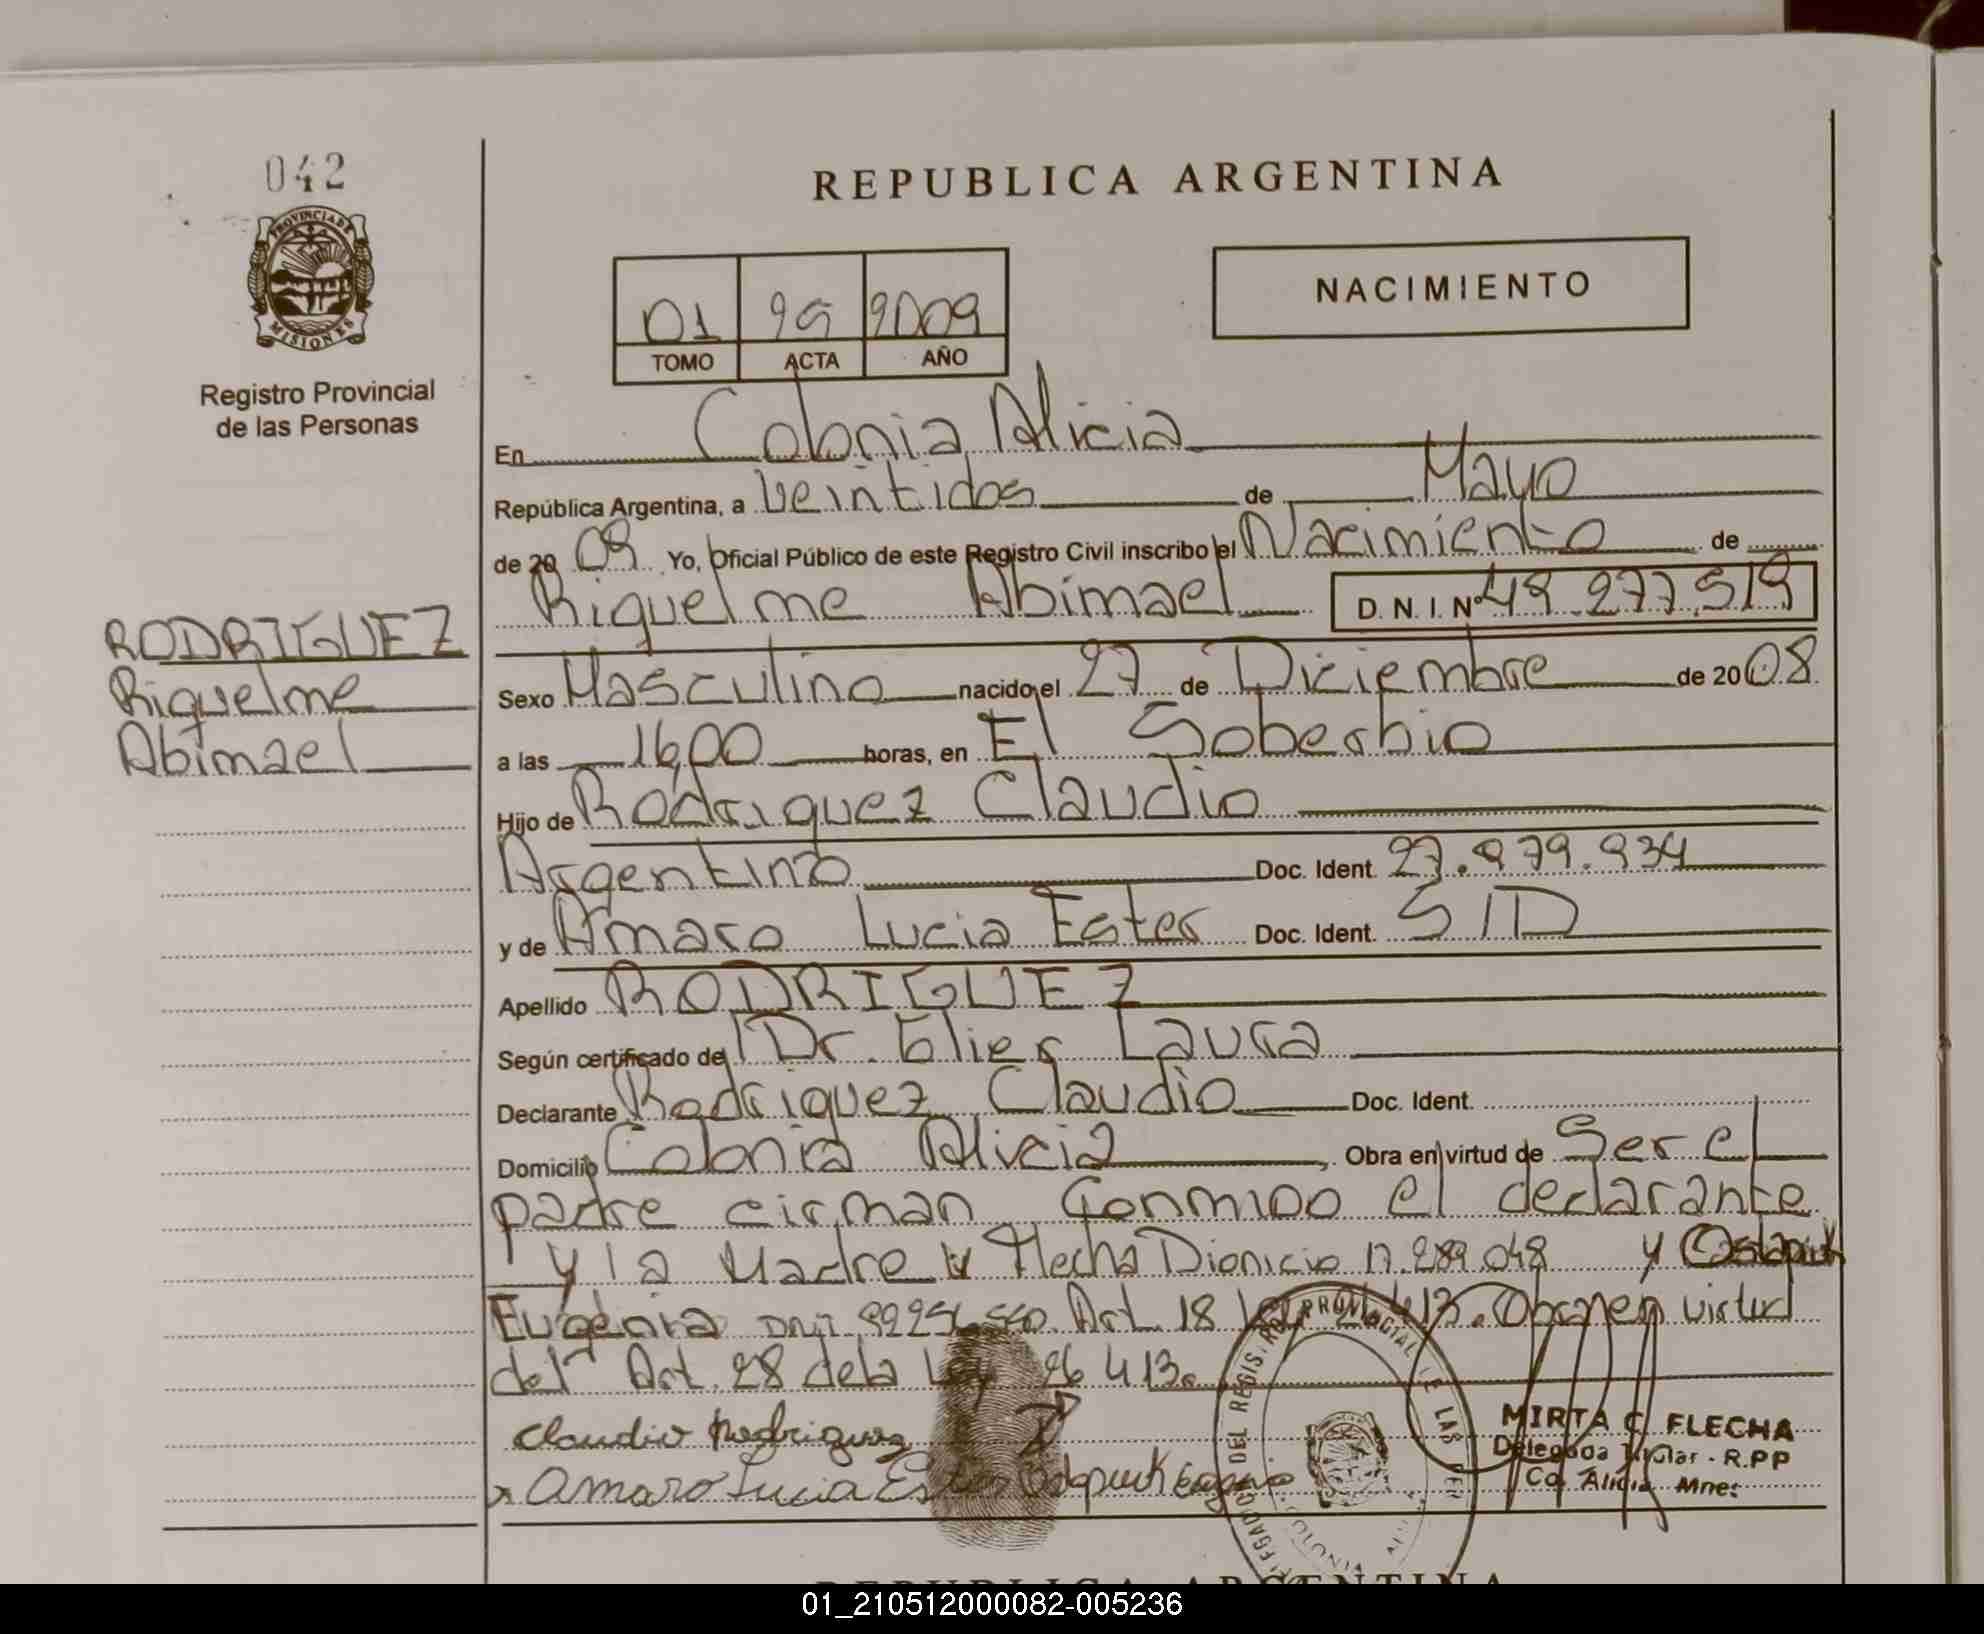 042
PROVINCIA DE
MISIONES
Registro Provincial
de las Personas
RODRIGUEZ
Riquelme
Abimael
REPUBLICA ARGENTINA
01 29 2009
TOMO ACTA AÑO
NACIMIENTO
En Colonia Alicia
República Argentina, a veintidos de Mayo
de 2009 Yo, Oficial Público de este Registro Civil inscribo el Nacimiento de
Riquelme Abimael D. N. I. Nº 49.277.519
Sexo Masculino nacido el 27 de Diciembre de 2008
a las 16,00 horas, en El Soberbio
Hijo de Rodriguez Claudio
Argentino Doc. Ident. 27.979.934
y de Amaro Lucia Ester Doc. Ident. S/D
Apellido RODRIGUEZ
Según certificado de Dr. Elies Laura
Declarante Rodriguez Claudio Doc. Ident.
Domicilio Colonia Alicia Obra en virtud de Ser el
padre firman conmigo el declarante
y la Madre y Flecha Dionicio 17.289.048 y
Eugenia DNI Art. 18 Ley 26.413. Obran en virtud
del Art. 28 de la Ley 26413.
Claudio Rodriguez
Amaro Lucia Ester
MIRTA C. FLECHA
Delegada Titular - R.PP
Co. Alicia Mnes
REPUBLICA ARGENTINA
01_210512000082-005236